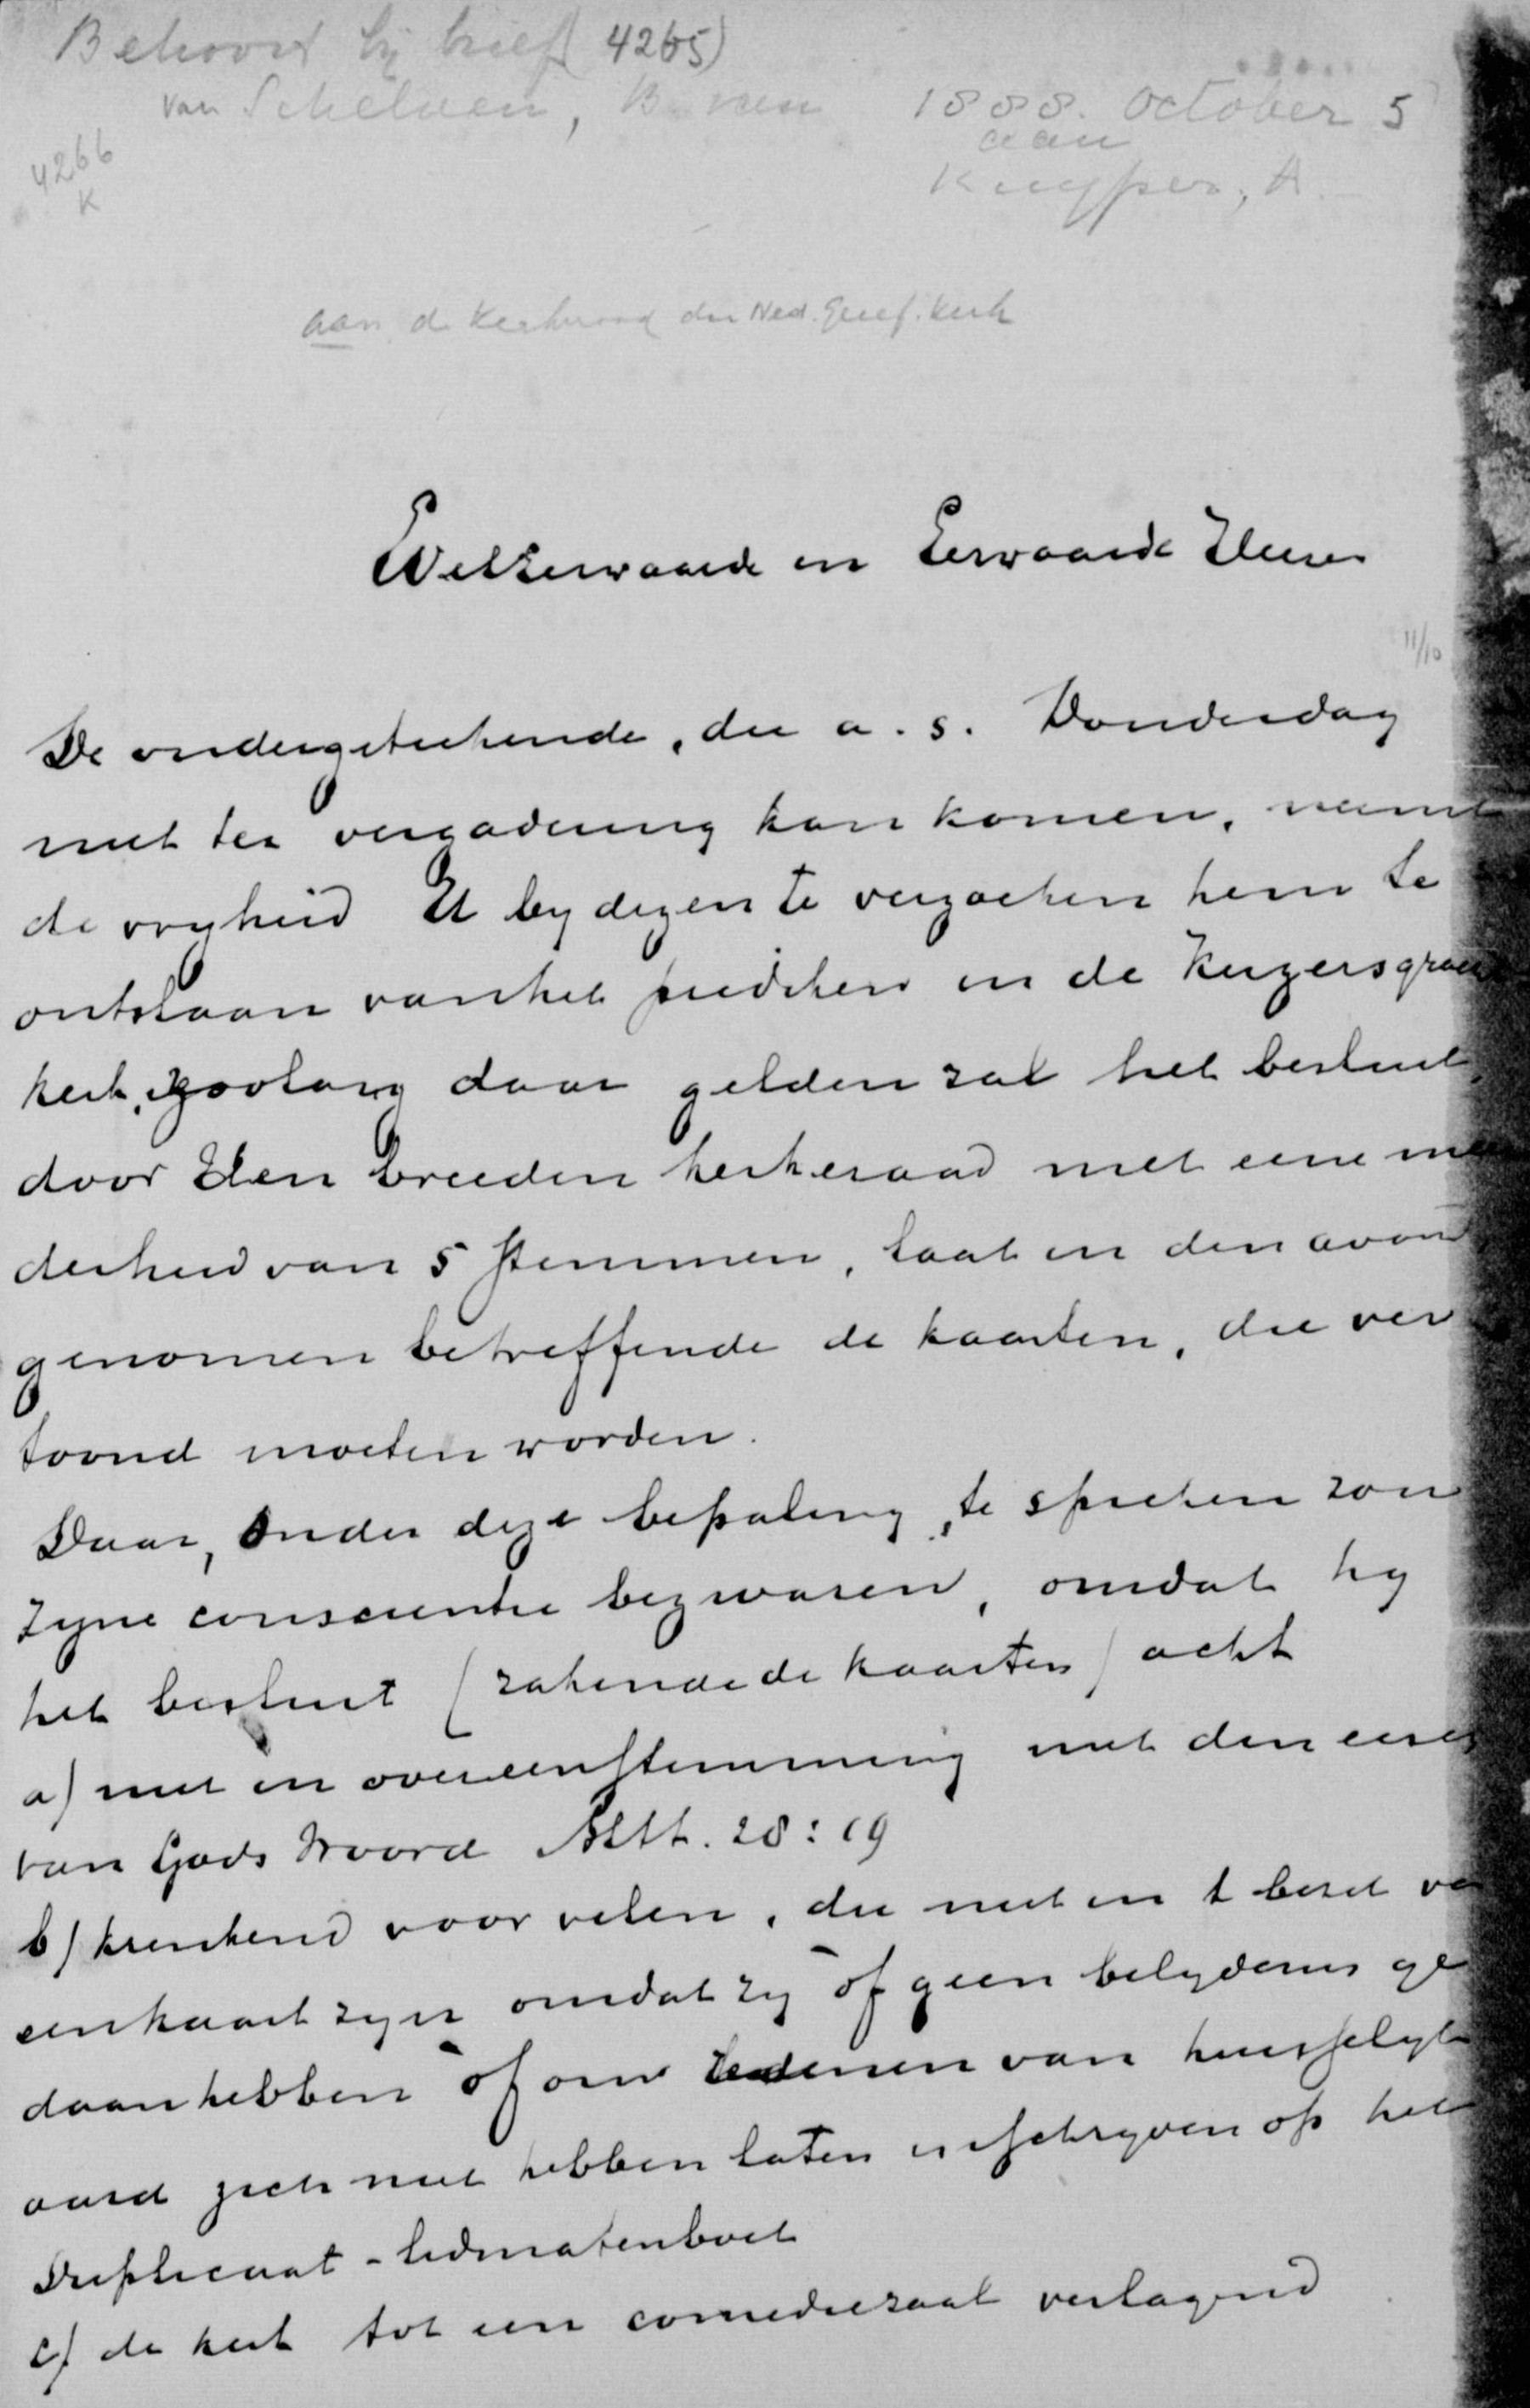 Behoord bij brief 4265)
van Schelven, B. van 1888. October 5
aan
4266 Kuyper, A.
K
aan de Kerkeraad der Ned. Geref. Kerk
WelEerwaarde en Eerwaarde Heeren
11/10
De ondergeteekende, die a. s. Donderdag
niet ter vergadering kan komen, neemt
de vryheid U by dezen te verzoeken hem te
ontslaan van het prediken in de Keizersgracht
kerk, zoolang daar gelden zal het besluit,
door den breeden kerkeraad met eene meer
derheid van 5 stemmen, laat in den avond
genomen betreffende de kaarten, die ver
toond moeten worden.
Daar, onder deze bepaling, te spreken zou
zyne conscientie bezwaren, omdat hy
het besluit (rakende de kaarten) acht
a) niet in overeenstemming met den eisch
van Gods Woord Matt. 28:19
b) krenkend voor velen, die niet in 't bezit van
een kaart zyn omdat zy òf geen belydenis ge
daan hebben òf om redenen van huisselyken
aard zich niet hebben laten inschryven op het
Duplicaat-lidmatenboek
c) de kerk tot een comediezaal verlagend